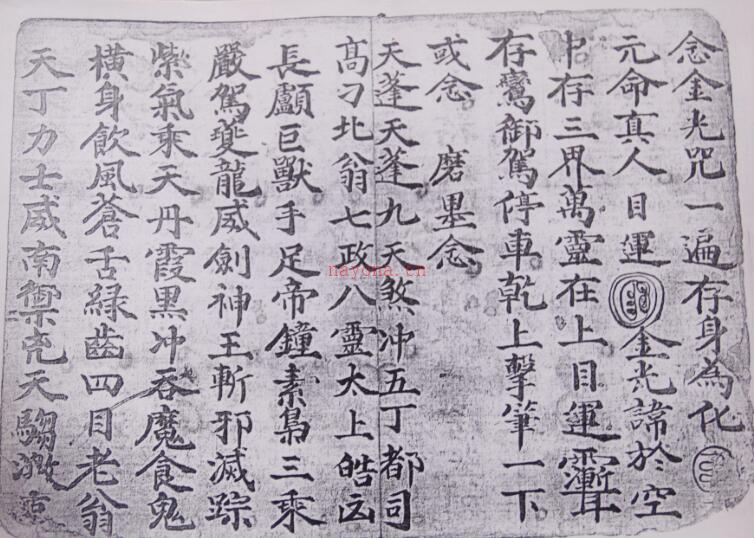 念金光咒一遍存身為化
元命真人目運金光諱於空
中存三界萬靈在上目運聻
存鸞御駕停車乾上擊筆一下
或念 磨墨念
天蓬天蓬九天煞冲五丁都司
高刁北翁七政八靈太上皓凶
長顱巨獸手足帝鐘素梟三乘
嚴駕夔龍威劍神王斬邪滅踪
紫氣乘天丹霞黑冲吞魔食鬼
橫身飲風蒼舌緑齒四目老翁
天丁力士威南禦兇天騶激
nayona.cn